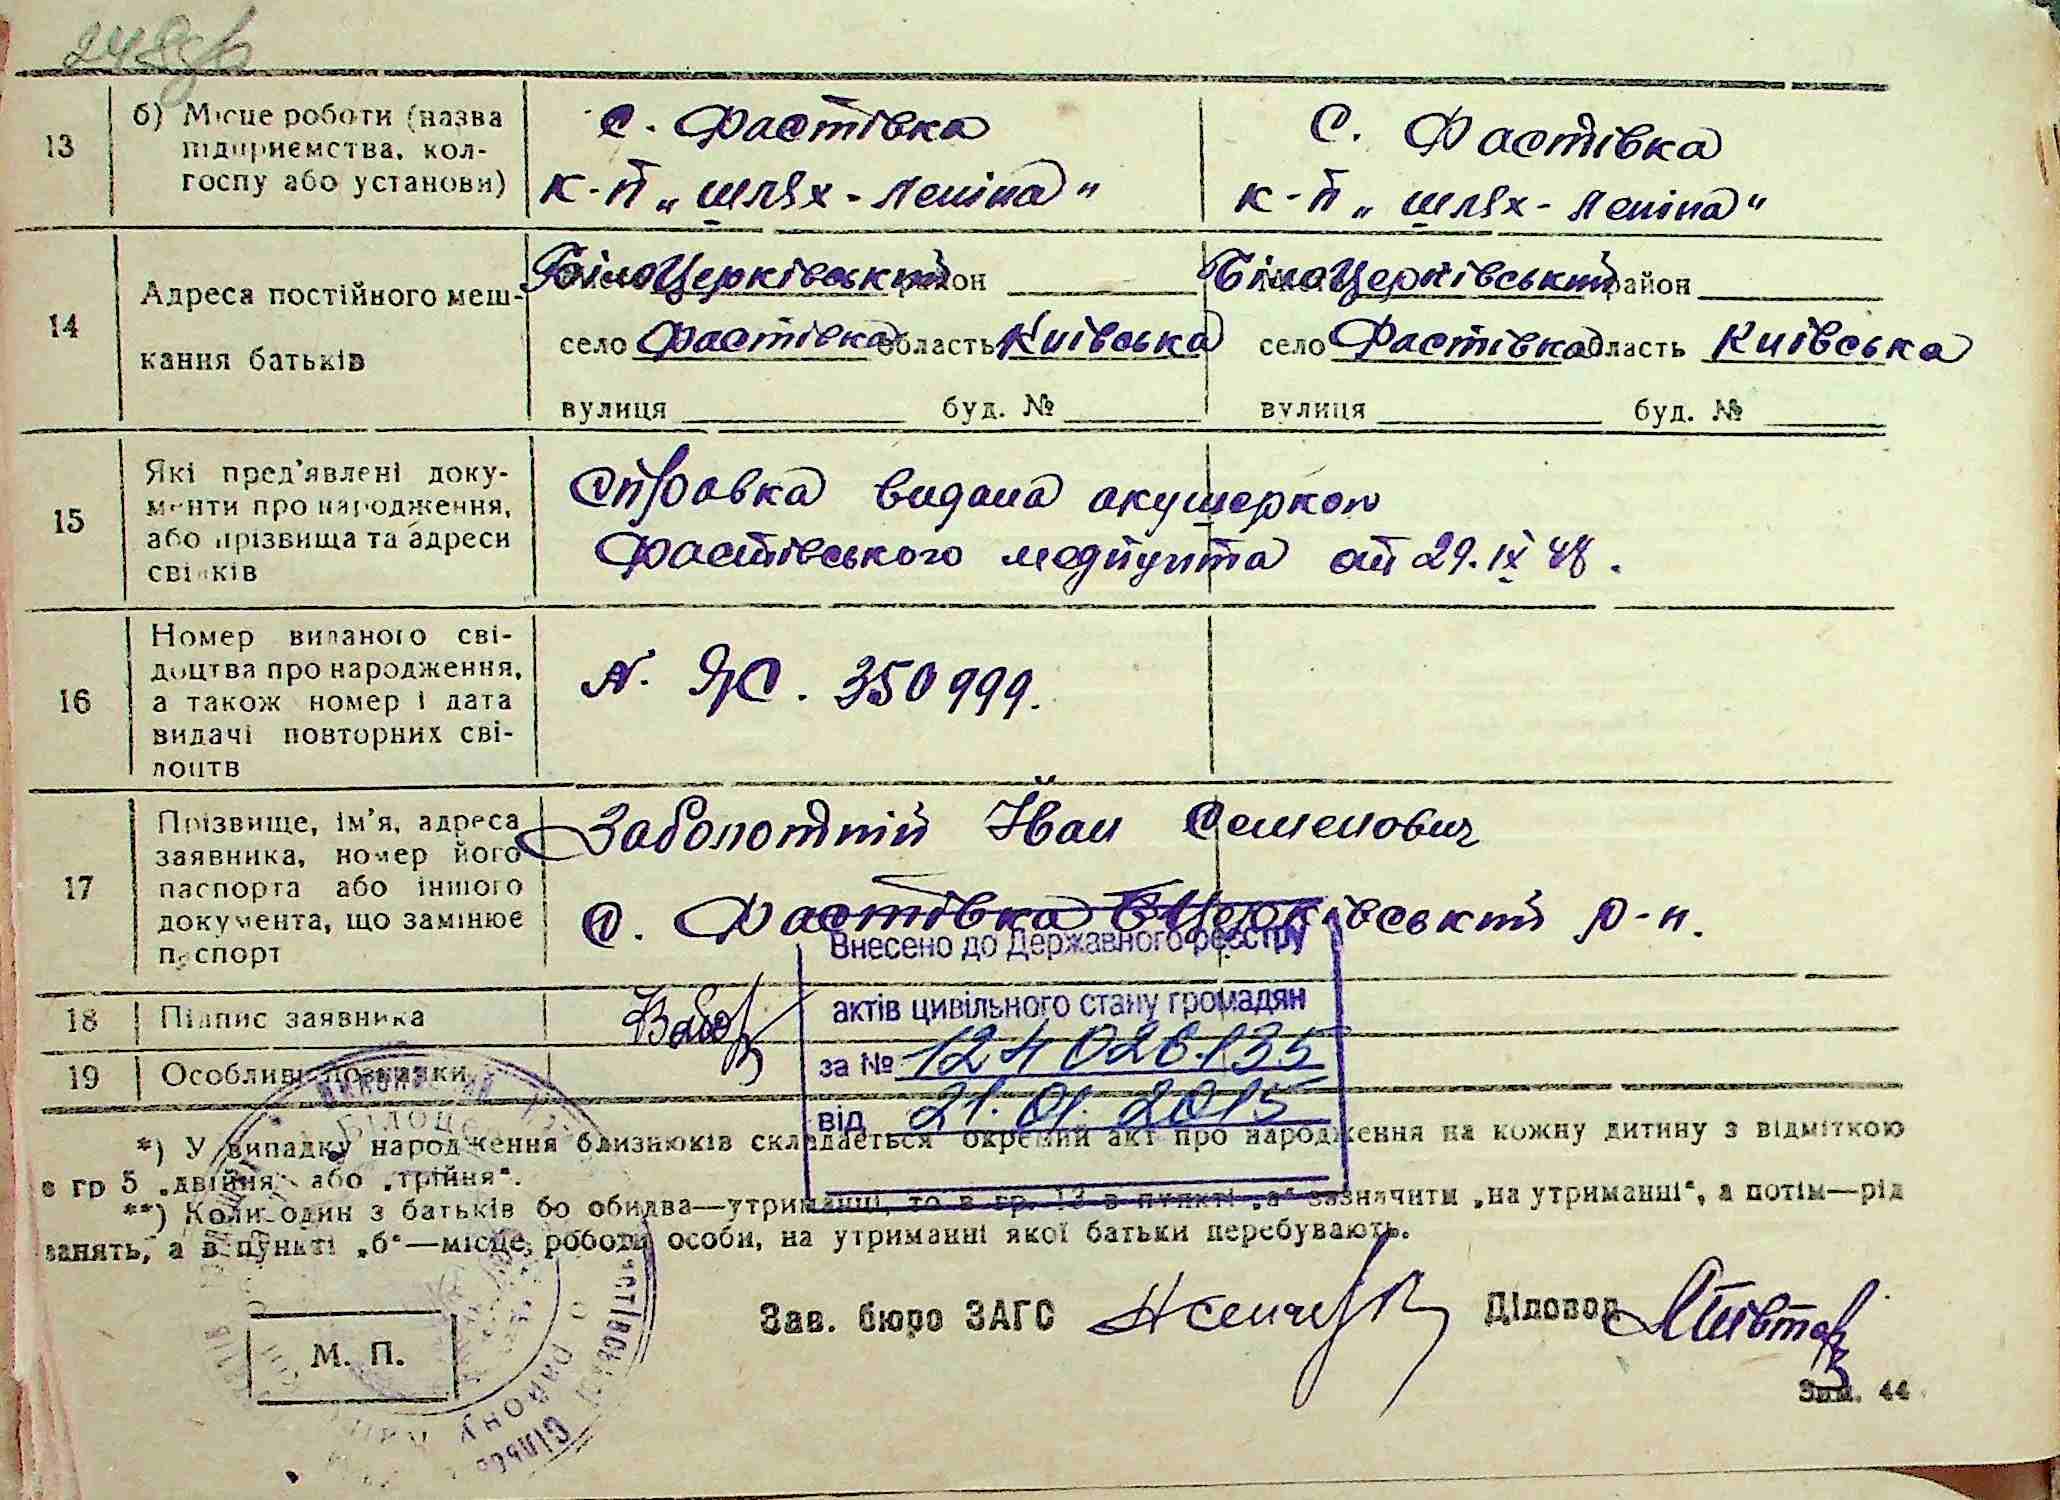 248
13
б) Місце роботи (назва
підприємства, кол-
госпу або установи)
с. Фастівка
к-п „шлях-Леніна"
С. Фастівка
к-п „шлях-Леніна"
14
Адреса постійного меш-
кання батьків
БілоЦерківський район
село Фастівка область Київська
вулиця буд. №
БілоЦерківський район
село Фастівка область Київська
вулиця буд. №
15
Які пред'явлені доку-
менти про народження,
або прізвища та адреси
свідків
Справка видана акушеркою
Фастівського медпункта от 29.IX 48.
16
Номер виданого сві-
доцтва про народження,
а також номер і дата
видачі повторних сві-
доцтв
N. ЯС. 350999.
17
Прізвище, ім'я, адреса
заявника, номер його
паспорта або іншого
документа, що замінює
паспорт
Заболотній Іван Семенович
с. Фастівка БЦерківський р-н.
18
Підпис заявника
19
Особливі познаки
Внесено до Державного реєстру
актів цивільного стану громадян
за № 124026135
від 21.01.2015
*) У випадку народження близнюків складається окремий акт про народження на кожну дитину з відміткою
в гр 5 „двійня" або „трійня".
**) Коли один з батьків бо обидва—утриманці, то в гр. 13 в пункті „а" зазначити „на утриманні", а потім—рід
занять, а в пункті „б"—місце роботи особи, на утриманні якої батьки перебувають.
М. П.
Зав. бюро ЗАГС
Діловод
Зам. 44